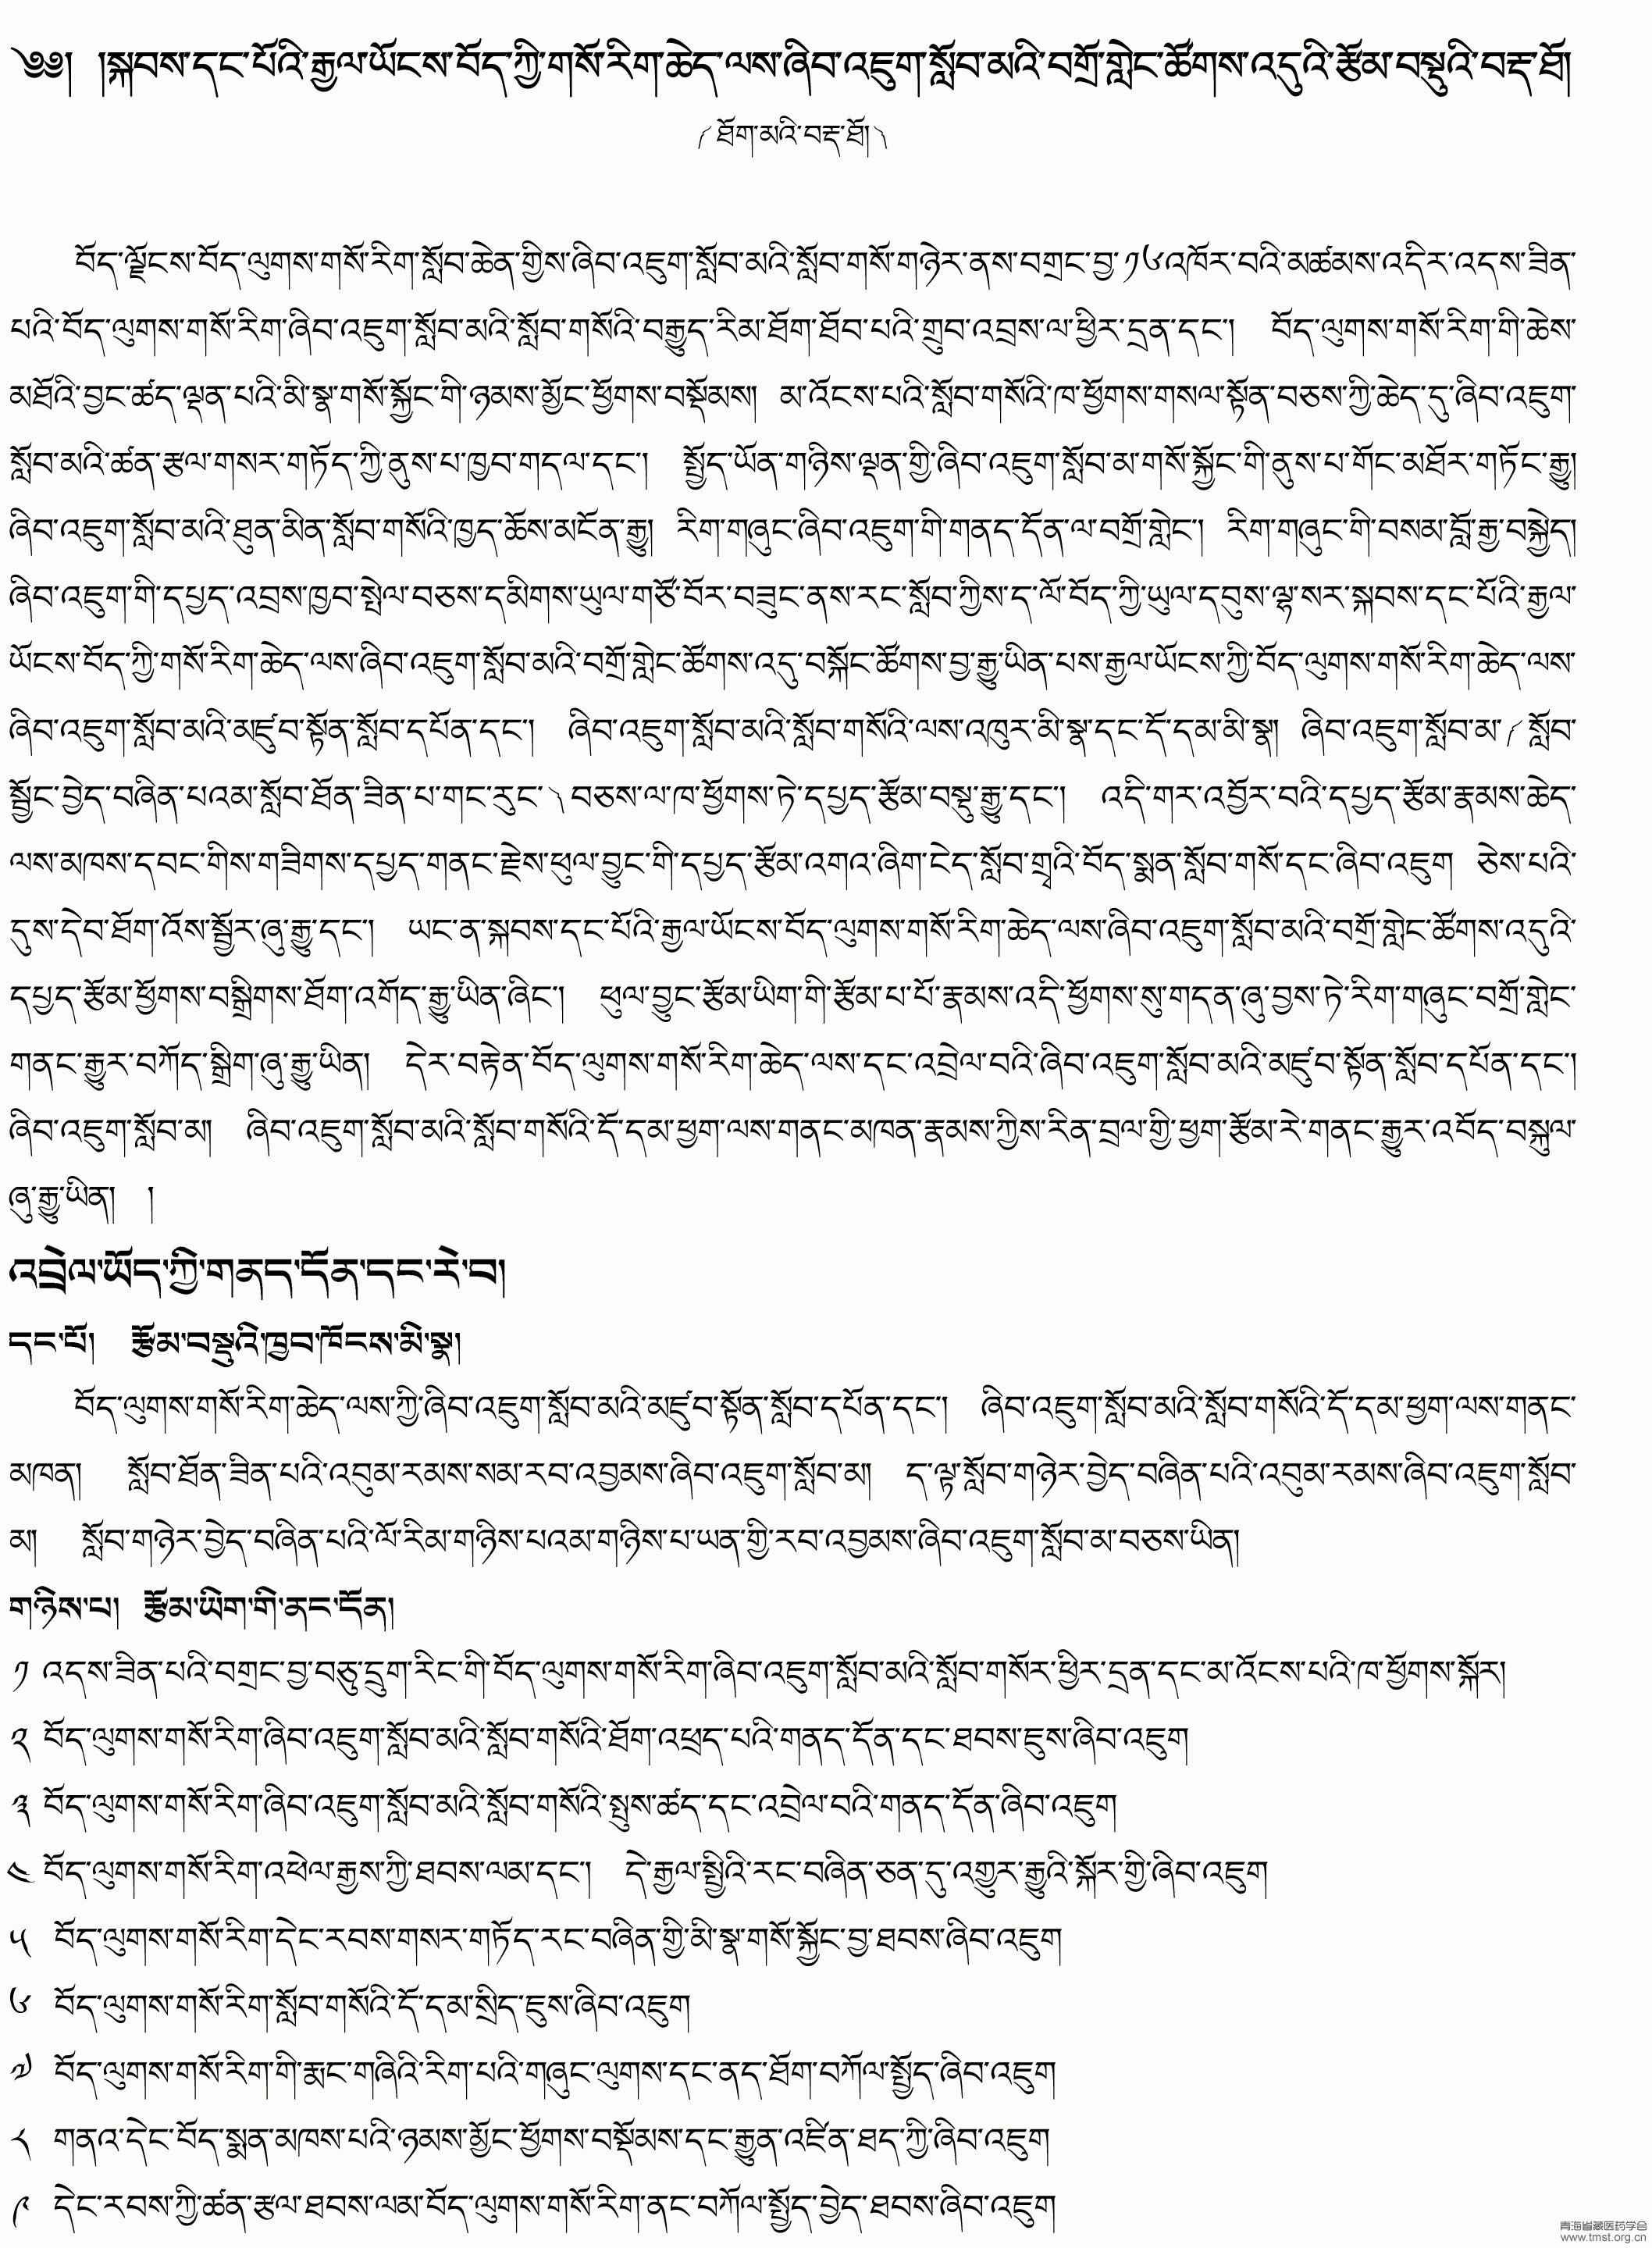 ༄༅། །སྐབས་དང་པོའི་རྒྱལ་ཡོངས་བོད་ཀྱི་གསོ་རིག་ཆེད་ལས་ཞིབ་འཇུག་སློབ་མའི་བགྲོ་གླེང་ཚོགས་འདུའི་རྩོམ་བསྡུའི་བརྡ་ཐོ།
༼ཐོག་མའི་བརྡ་ཐོ།༽
བོད་ལྗོངས་བོད་ལུགས་གསོ་རིག་སློབ་ཆེན་གྱིས་ཞིབ་འཇུག་སློབ་མའི་སློབ་གསོ་གཉེར་ནས་བགྲང་བྱ་༡༦འཁོར་བའི་མཚམས་འདིར་འདས་ཟིན་
པའི་བོད་ལུགས་གསོ་རིག་ཞིབ་འཇུག་སློབ་མའི་སློབ་གསོའི་བརྒྱུད་རིམ་ཐོག་ཐོབ་པའི་གྲུབ་འབྲས་ལ་ཕྱིར་དྲན་དང་། བོད་ལུགས་གསོ་རིག་གི་ཆེས་
མཐོའི་བྱང་ཚད་ལྡན་པའི་མི་སྣ་གསོ་སྐྱོང་གི་ཉམས་མྱོང་ཕྱོགས་བསྡོམས། མ་འོངས་པའི་སློབ་གསོའི་ཁ་ཕྱོགས་གསལ་སྟོན་བཅས་ཀྱི་ཆེད་དུ་ཞིབ་འཇུག་
སློབ་མའི་ཚན་རྩལ་གསར་གཏོད་ཀྱི་ནུས་པ་ཁྱབ་གདལ་དང་། སྤྱོད་ཡོན་གཉིས་ལྡན་གྱི་ཞིབ་འཇུག་སློབ་མ་གསོ་སྐྱོང་གི་ནུས་པ་གོང་མཐོར་གཏོང་རྒྱུ།
ཞིབ་འཇུག་སློབ་མའི་ཐུན་མིན་སློབ་གསོའི་ཁྱད་ཆོས་མངོན་རྒྱུ། རིག་གཞུང་ཞིབ་འཇུག་གི་གནད་དོན་ལ་བགྲོ་གླེང་། རིག་གཞུང་གི་བསམ་བློ་རྒྱ་བསྐྱེད།
ཞིབ་འཇུག་གི་དཔྱད་འབྲས་ཁྱབ་སྤེལ་བཅས་དམིགས་ཡུལ་གཙོ་བོར་བཟུང་ནས་རང་སློབ་ཀྱིས་ད་ལོ་བོད་ཀྱི་ཡུལ་དབུས་ལྷ་སར་སྐབས་དང་པོའི་རྒྱལ་
ཡོངས་བོད་ཀྱི་གསོ་རིག་ཆེད་ལས་ཞིབ་འཇུག་སློབ་མའི་བགྲོ་གླེང་ཚོགས་འདུ་བསྐོང་ཚོགས་བྱ་རྒྱུ་ཡིན་པས་རྒྱལ་ཡོངས་ཀྱི་བོད་ལུགས་གསོ་རིག་ཆེད་ལས་
ཞིབ་འཇུག་སློབ་མའི་མཛུབ་སྟོན་སློབ་དཔོན་དང་། ཞིབ་འཇུག་སློབ་མའི་སློབ་གསོའི་ལས་འཁུར་མི་སྣ་དང་དོ་དམ་མི་སྣ། ཞིབ་འཇུག་སློབ་མ་༼སློབ་
སྦྱོང་བྱེད་བཞིན་པའམ་སློབ་ཐོན་ཟིན་པ་གང་རུང་༽བཅས་ལ་ཁ་ཕྱོགས་ཏེ་དཔྱད་རྩོམ་བསྡུ་རྒྱུ་དང་། འདི་གར་འབྱོར་བའི་དཔྱད་རྩོམ་རྣམས་ཆེད་
ལས་མཁས་དབང་གིས་གཟིགས་དཔྱད་གནང་རྗེས་ཕུལ་བྱུང་གི་དཔྱད་རྩོམ་འགའ་ཞིག་ངེད་སློབ་གྲྭའི་བོད་སྨན་སློབ་གསོ་དང་ཞིབ་འཇུག ཅེས་པའི་
དུས་དེབ་ཐོག་འོས་སྦྱོར་ཞུ་རྒྱུ་དང་། ཡང་ན་སྐབས་དང་པོའི་རྒྱལ་ཡོངས་བོད་ལུགས་གསོ་རིག་ཆེད་ལས་ཞིབ་འཇུག་སློབ་མའི་བགྲོ་གླེང་ཚོགས་འདུའི་
དཔྱད་རྩོམ་ཕྱོགས་བསྒྲིགས་ཐོག་འགོད་རྒྱུ་ཡིན་ཞིང་། ཕུལ་བྱུང་རྩོམ་ཡིག་གི་རྩོམ་པ་པོ་རྣམས་འདི་ཕྱོགས་སུ་གདན་ཞུ་བྱས་ཏེ་རིག་གཞུང་བགྲོ་གླེང་
གནང་རྒྱུར་བཀོད་སྒྲིག་ཞུ་རྒྱུ་ཡིན། དེར་བརྟེན་བོད་ལུགས་གསོ་རིག་ཆེད་ལས་དང་འབྲེལ་བའི་ཞིབ་འཇུག་སློབ་མའི་མཛུབ་སྟོན་སློབ་དཔོན་དང་།
ཞིབ་འཇུག་སློབ་མ། ཞིབ་འཇུག་སློབ་མའི་སློབ་གསོའི་དོ་དམ་ཕྱག་ལས་གནང་མཁན་རྣམས་ཀྱིས་རིན་བྲལ་གྱི་ཕྱག་རྩོམ་རེ་གནང་རྒྱུར་འབོད་བསྐུལ་
ཞུ་རྒྱུ་ཡིན། །
འབྲེལ་ཡོད་ཀྱི་གནད་དོན་དང་རེ་བ།
དང་པོ། རྩོམ་བསྡུའི་ཁྱབ་ཁོངས་མི་སྣ།
བོད་ལུགས་གསོ་རིག་ཆེད་ལས་ཀྱི་ཞིབ་འཇུག་སློབ་མའི་མཛུབ་སྟོན་སློབ་དཔོན་དང་། ཞིབ་འཇུག་སློབ་མའི་སློབ་གསོའི་དོ་དམ་ཕྱག་ལས་གནང་
མཁན། སློབ་ཐོན་ཟིན་པའི་འབུམ་རམས་སམ་རབ་འབྱམས་ཞིབ་འཇུག་སློབ་མ། ད་ལྟ་སློབ་གཉེར་བྱེད་བཞིན་པའི་འབུམ་རམས་ཞིབ་འཇུག་སློབ་
མ། སློབ་གཉེར་བྱེད་བཞིན་པའི་ལོ་རིམ་གཉིས་པའམ་གཉིས་པ་ཡན་གྱི་རབ་འབྱམས་ཞིབ་འཇུག་སློབ་མ་བཅས་ཡིན།
གཉིས་པ། རྩོམ་ཡིག་གི་ནང་དོན།
༡ འདས་ཟིན་པའི་བགྲང་བྱ་བཅུ་དྲུག་རིང་གི་བོད་ལུགས་གསོ་རིག་ཞིབ་འཇུག་སློབ་མའི་སློབ་གསོར་ཕྱིར་དྲན་དང་མ་འོངས་པའི་ཁ་ཕྱོགས་སྐོར།
༢ བོད་ལུགས་གསོ་རིག་ཞིབ་འཇུག་སློབ་མའི་སློབ་གསོའི་ཐོག་འཕྲད་པའི་གནད་དོན་དང་ཐབས་ཇུས་ཞིབ་འཇུག
༣ བོད་ལུགས་གསོ་རིག་ཞིབ་འཇུག་སློབ་མའི་སློབ་གསོའི་སྤུས་ཚད་དང་འབྲེལ་བའི་གནད་དོན་ཞིབ་འཇུག
༤ བོད་ལུགས་གསོ་རིག་འཕེལ་རྒྱས་ཀྱི་ཐབས་ལམ་དང་། དེ་རྒྱལ་སྤྱིའི་རང་བཞིན་ཅན་དུ་འགྱུར་རྒྱུའི་སྐོར་གྱི་ཞིབ་འཇུག
༥ བོད་ལུགས་གསོ་རིག་དེང་རབས་གསར་གཏོད་རང་བཞིན་གྱི་མི་སྣ་གསོ་སྐྱོང་བྱ་ཐབས་ཞིབ་འཇུག
༦ བོད་ལུགས་གསོ་རིག་སློབ་གསོའི་དོ་དམ་སྲིད་ཇུས་ཞིབ་འཇུག
༧ བོད་ལུགས་གསོ་རིག་གི་རྨང་གཞིའི་རིག་པའི་གཞུང་ལུགས་དང་ནད་ཐོག་བཀོལ་སྤྱོད་ཞིབ་འཇུག
༨ གནའ་དེང་བོད་སྨན་མཁས་པའི་ཉམས་མྱོང་ཕྱོགས་བསྡོམས་དང་རྒྱུན་འཛིན་ཐད་ཀྱི་ཞིབ་འཇུག
༩ དེང་རབས་ཀྱི་ཚན་རྩལ་ཐབས་ལམ་བོད་ལུགས་གསོ་རིག་ནང་བཀོལ་སྤྱོད་བྱེད་ཐབས་ཞིབ་འཇུག
青海省藏医药学会
www.tmst.org.cn